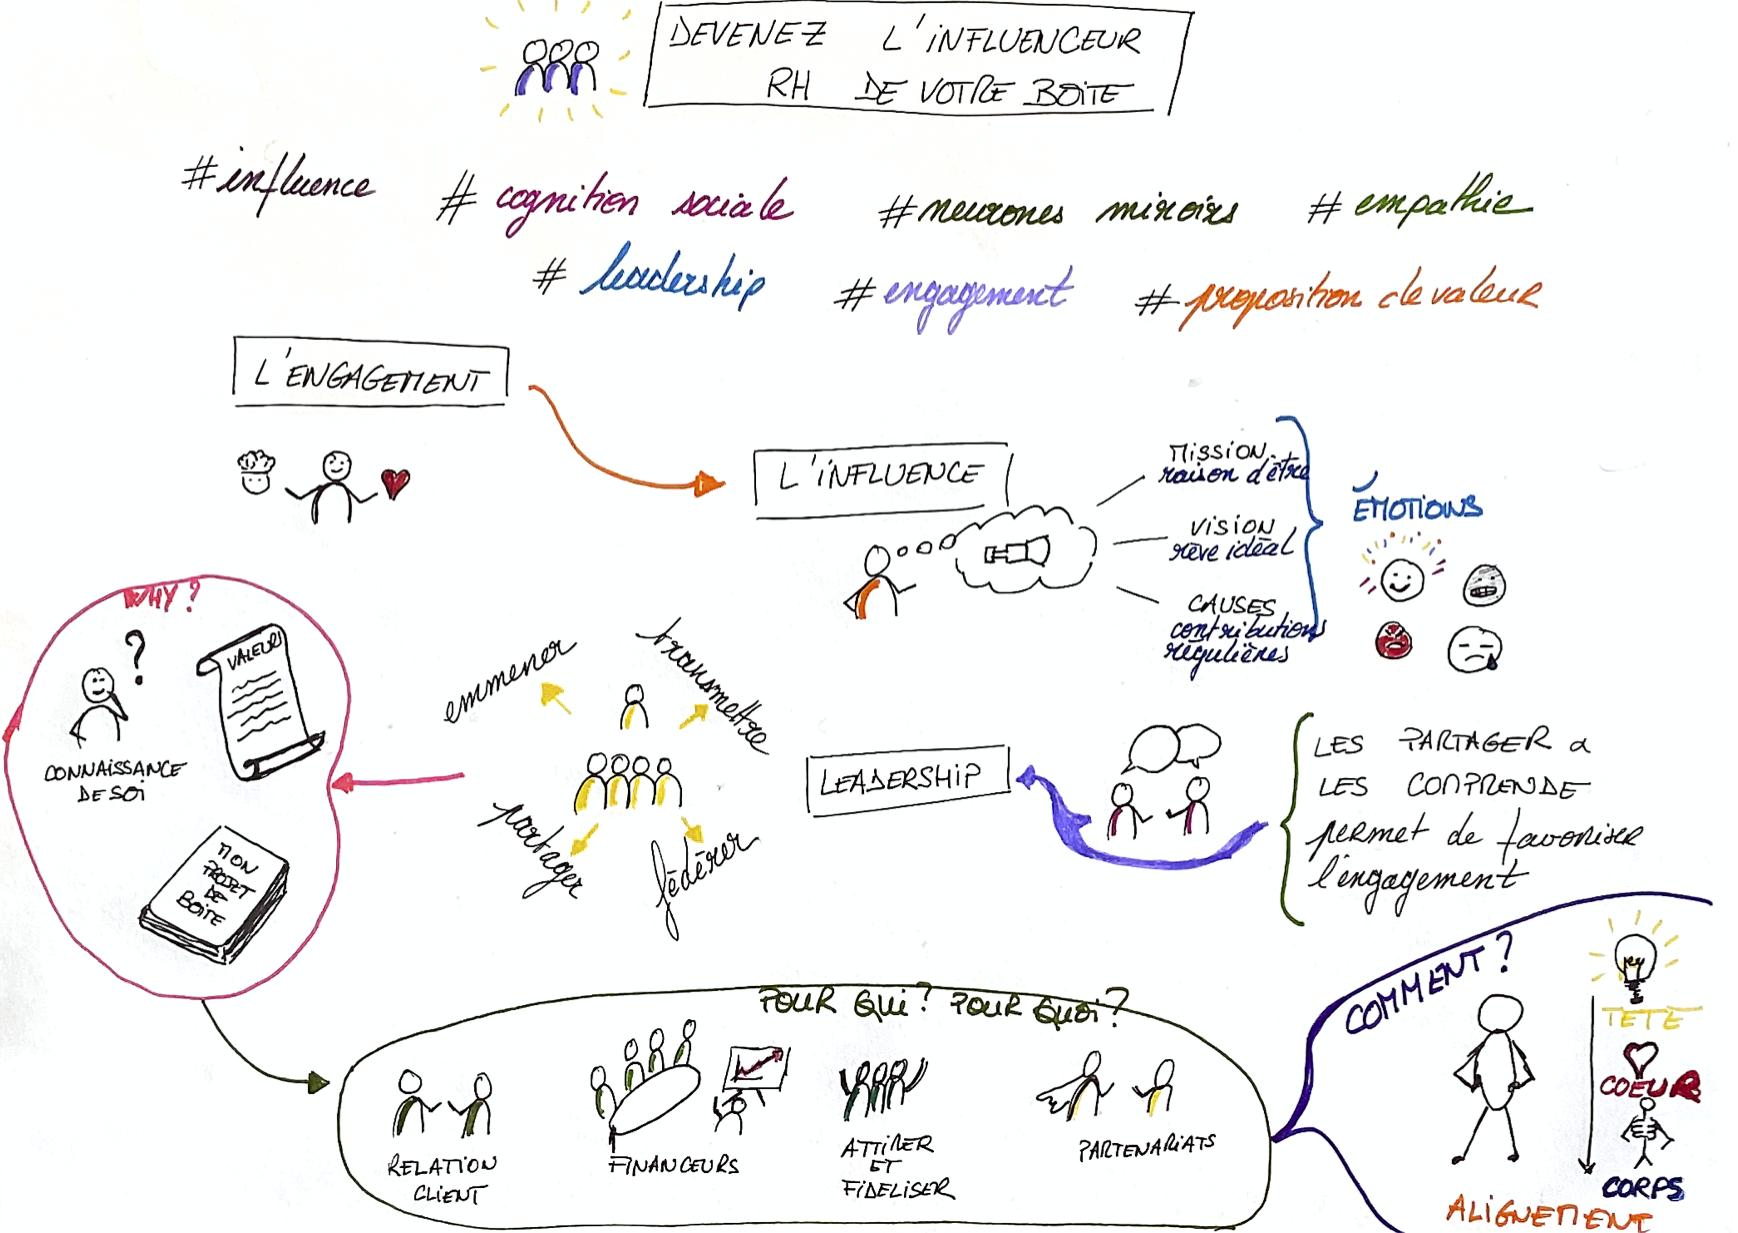 DEVENEZ L'iNFLUENCEUR
RH DE VOTRE BOiTE
#influence
# cognition sociale
#neurones miroirs
# empathie
# leadership
#engagement
# proposition de valeur
L'ENGAGEMENT
L'iNFLUENCE
MiSSiON
raison d'être
ViSiON
rêve idéal
CAUSES
contributions
régulières
ÉMOTiONS
WHY?
?
VALEURS
CONNAiSSANCE
DE SOi
MON
PROJET
DE
BOiTE
emmener
transmettre
partager
fédérer
LEADERSHiP
LES PARTAGER &
LES COMPRENDE
permet de favoriser
l'engagement
POUR QUi? POUR QUOi?
RELATiON
CLiENT
FiNANCEURS
ATTiRER
ET
FiDELiSER
PARTENARiATS
COMMENT?
TETE
COEUR
CORPS
ALiGNEMENT